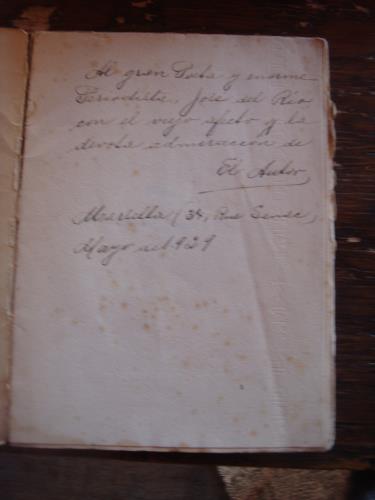 Al gran Poeta y enorme
Periodista, José del Río
con el viejo afecto y la
devota admiración de
El Autor
Marsella (34, Rue Senac,
Mayo del 929